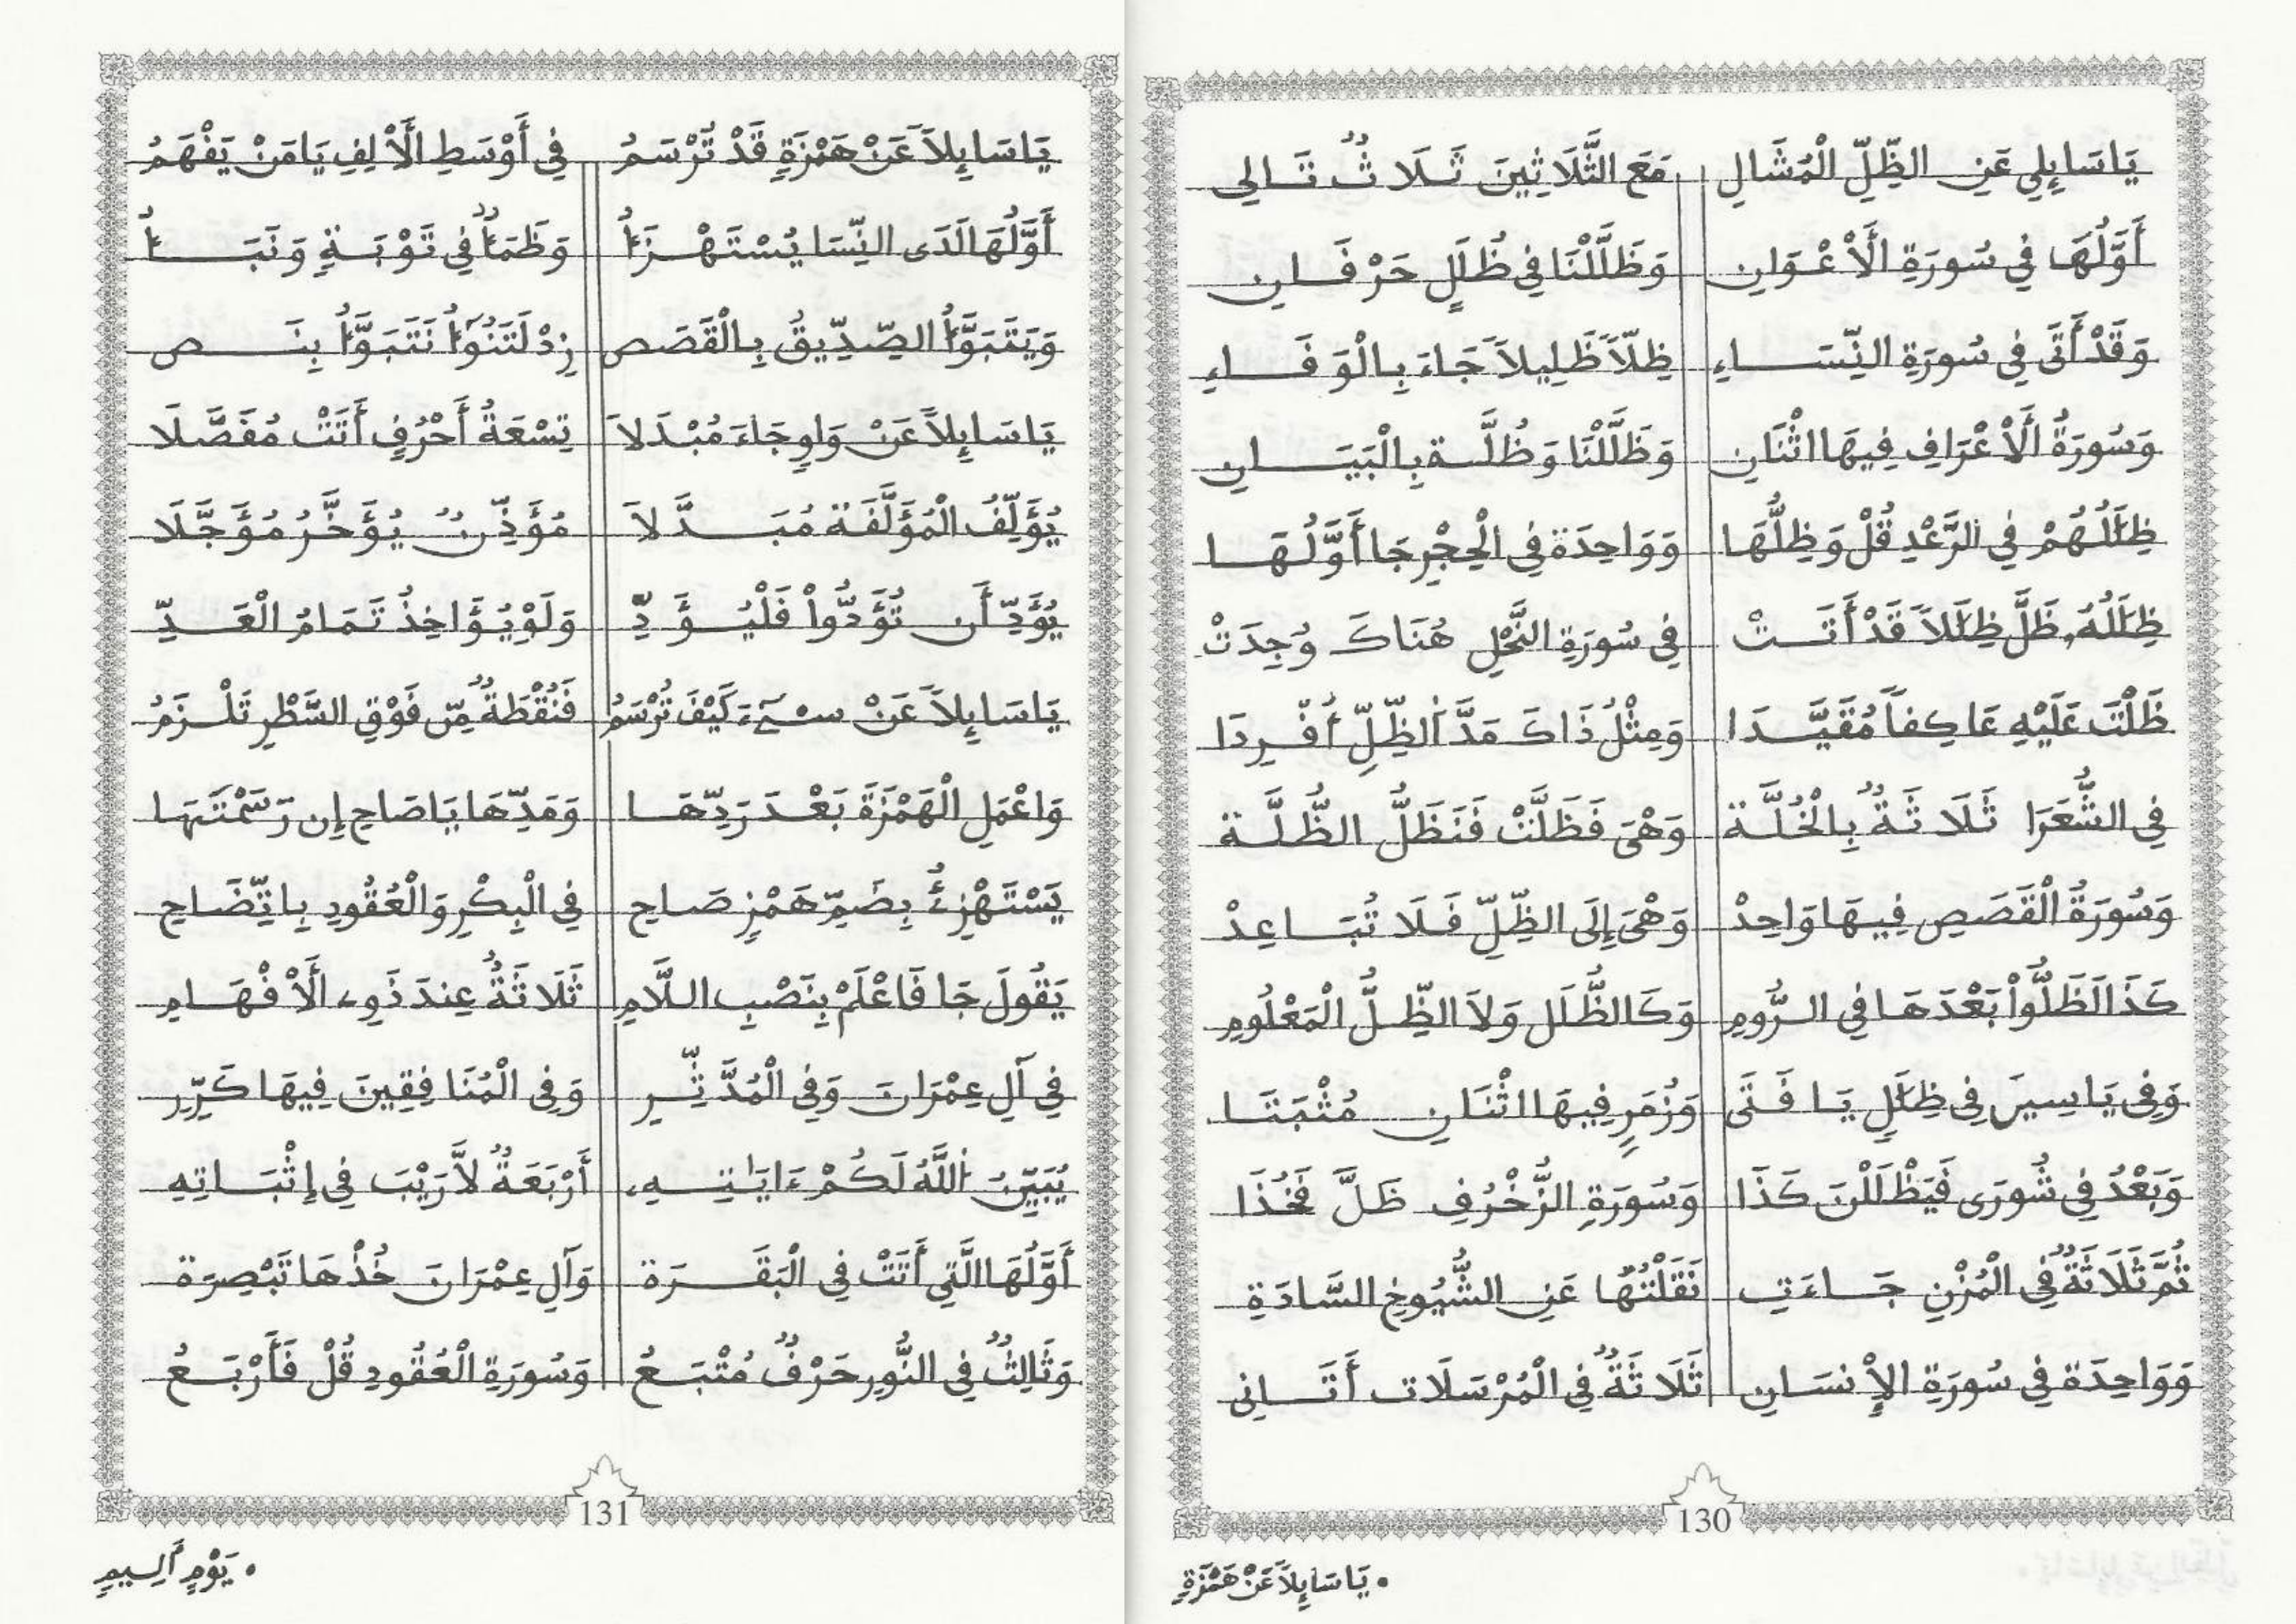 يَاسَايِلِي عَنِ الظِّلِّ الْمُشَالِ مَعَ الثَّلَاثِينَ ثَلَاثٌ تَالِي
أَوَّلُهَا فِي سُورَةِ الَأعْوَانِ وَظَلَّلْنَا فِي ظُلَلٍ حَرْفَانِ
وَقَدْ أَتَى فِي سُورَةِ النِّسَاءِ ظِلّاً ظَلِيلاً جَاءَ بِالْوَفَاءِ
وَسُورَةُ الَأعْرَافِ فِيهَا اثْنَانِ وَظَلَّلْنَا وَظُلَّة بِالْبَيَانِ
ظِلَٰلُهُمْ فِي الرَّعْدِ قُلْ وَظِلُّهَا وَوَاحِدَة فِي الْحِجْرِ جَا أَوَّلُهَا
ظِلَٰلُهُ, ظَلَّ ظِلَٰلاً قَدْ أَتَتْ فِي سُورَةِ النَّحْلِ هُنَاكَ وُجِدَتْ
ظَلْتَ عَلَيْهِ عَاكِفاً مُقَيَّدَا وَمِثْلُ ذَاكَ مَدَّ اَلظِّلِّ أُفْرِدَا
فِي الشُّعَرَا ثَلَاثَةٌ بِالْخُلَّة وَهْيَ فَظَلَّتْ فَنَظَلُّ الظُّلَّة
وَسُورَةُ الْقَصَصِ فِيهَا وَاحِدْ وَهْيَ إِلَى الظِّلِّ فَلَا تُبَاعِدْ
كَذَا لَظَلُّواْ بَعْدَهَا فِي الرُّومِ وَكَالظُّلَلِ وَلاَ الظِّلُّ الْمَعْلُومِ
وَفِي يَاسِينَ فِي ظِلَٰلٍ يَا فَتَى وَزُمَرٍ فِيهَا اثْنَانِ مُثْبَتَا
وَبَعْدُ فِي شُورَى فَيَظْلَلْنَ كَذَا وَسُورَةِ الزُّخْرُفِ ظَلَّ فَخُذَا
ثُمَّ ثَلَاثَةٌ فِي الْمُزْنِ جَاءَتِ نَقَلْتُهَا عَنِ الشُّيُوخِ السَّادَةِ
وَوَاحِدَة فِي سُورَةِ الإِنسَانِ ثَلَاثَةٌ فِي الْمُرْسَلَات أَتَانِى
130
• يَاسَايِلاً عَنْ هَمْزَةٍ
يَاسَايِلاً عَنْ هَمْزَةٍ قَدْ تُرْسَمُ فِي أَوْسَطِ الَألِفِ يَا مَنْ يَفْهَمُ
أَوَّلُهَا لَدَى النِّسَا يُسْتَهْزَأُ وَظَمَأٌ فِي تَوْبَةٍ وَنَبَأُ
وَيَتَبَوَّأُ الصِّدِّيقُ بِالْقَصَص زِدْ لَتَنُوٓأُ نَتَبَوَّأُ بِنَص
يَاسَايِلاً عَنْ وَاوٍ جَاءَ مُبْدَلاَ تِسْعَةُ أَحْرُفٍ أَتَتْ مُفَصَّلَا
يُؤَلِّفُ الْمُؤَلَّفَة مُبَدَّلاَ مُؤَذِّنٌ يُؤَخَّرُ مُؤَجَّلَا
يُؤَدِّ أَن تُؤَدُّواْ فَلْيُؤَدِّ وَلَوْ يُؤَاخِذُ تَمَامُ الْعَدِّ
يَاسَايِلاً عَنْ سِيٓءَ كَيْفَ تُرْسَمُ فَنُقْطَةٌ مِّن فَوْقِ السَّطْرِ تَلْزَمُ
وَاعْمَلِ الْهَمْزَةَ بَعْدَ رَدِّهَا وَمَدِّهَا يَاصَاحِ إِن رَسَمْتَهَا
يَسْتَهْزِئُ بِضَمِّ هَمْزٍ صَاحِ فِي الْبِكْرِ وَالْعُقُودِ بِاتِّضَاحِ
يَقُولَ جَا فَاعْلَمْ بِنَصْبِ اللَّامِ ثَلَاثَةٌ عِندَ ذَوِي الَأفْهَامِ
فِي آلِ عِمْرَانَ وَفِي الْمُدَّثِّرِ وَفِي الْمُنَافِقِينَ فِيهَا كَرِّرِ
يُبَيِّنُ اُللَّهُ لَكُمْ ءَايَٰتِهِ أَرْبَعَةٌ لاَّ رَيْبَ فِي إِثْبَاتِهِ
أَوَّلُهَا الَّتِي أَتَتْ فِي الْبَقَرَة وَآلِ عِمْرَانَ خُذْهَا تَبْصِرَة
وَثَالِثٌ فِي النُّورِ حَرْفٌ مُتْبَعُ وَسُورَةِ الْعُقُودِ قُلْ فَأَرْبَعُ
131
• يَوْمٍ أَلِيمٍ